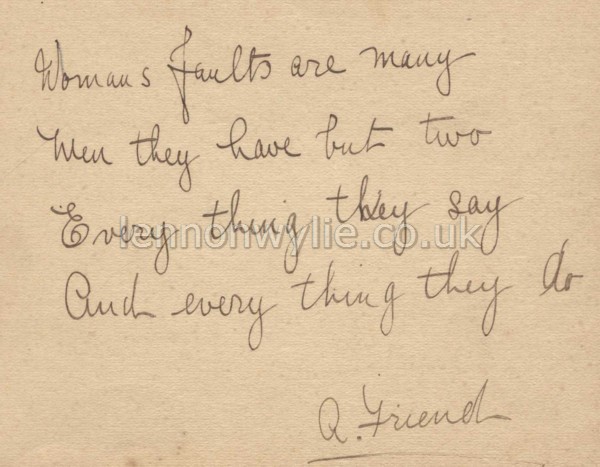 Womans faults are many
Men they have but two
Every thing they say
lennonwylie.co.uk
And every thing they do
A. Friend